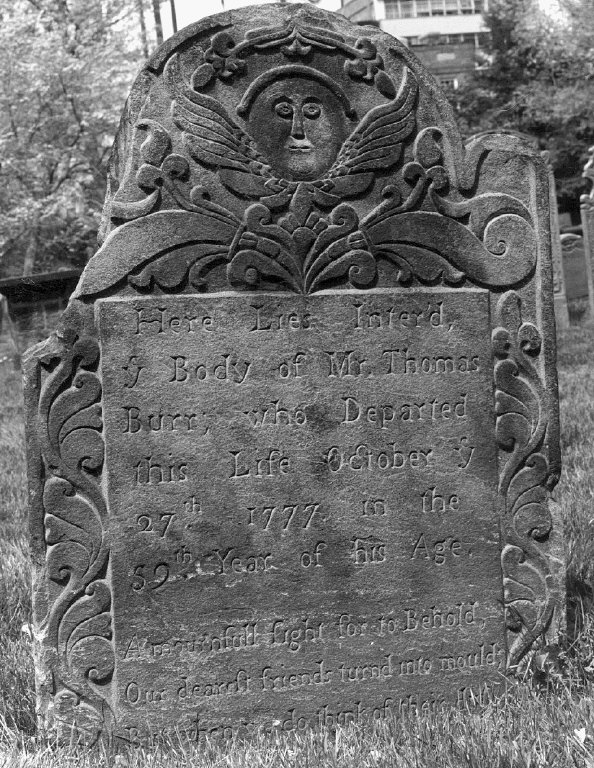 Here Lies Inter'd,
ẙ Body of Mr. Thomas
Burr, who Departed
this Life October ẙ
27.th 1777 in the
59th Year of his Age.
A mournfull sight for to Behold,
Our dearest friends turnd into mould;
But when we do think of their